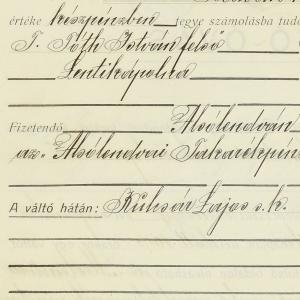 értéke készpénzben tegye számolásba tudó
T. Tóth István felső
Lentikápolna
Fizetendő Alsólendván
az Alsólendvai Takarékpén
A váltó hátán: Kulcsár Lajos s.k.